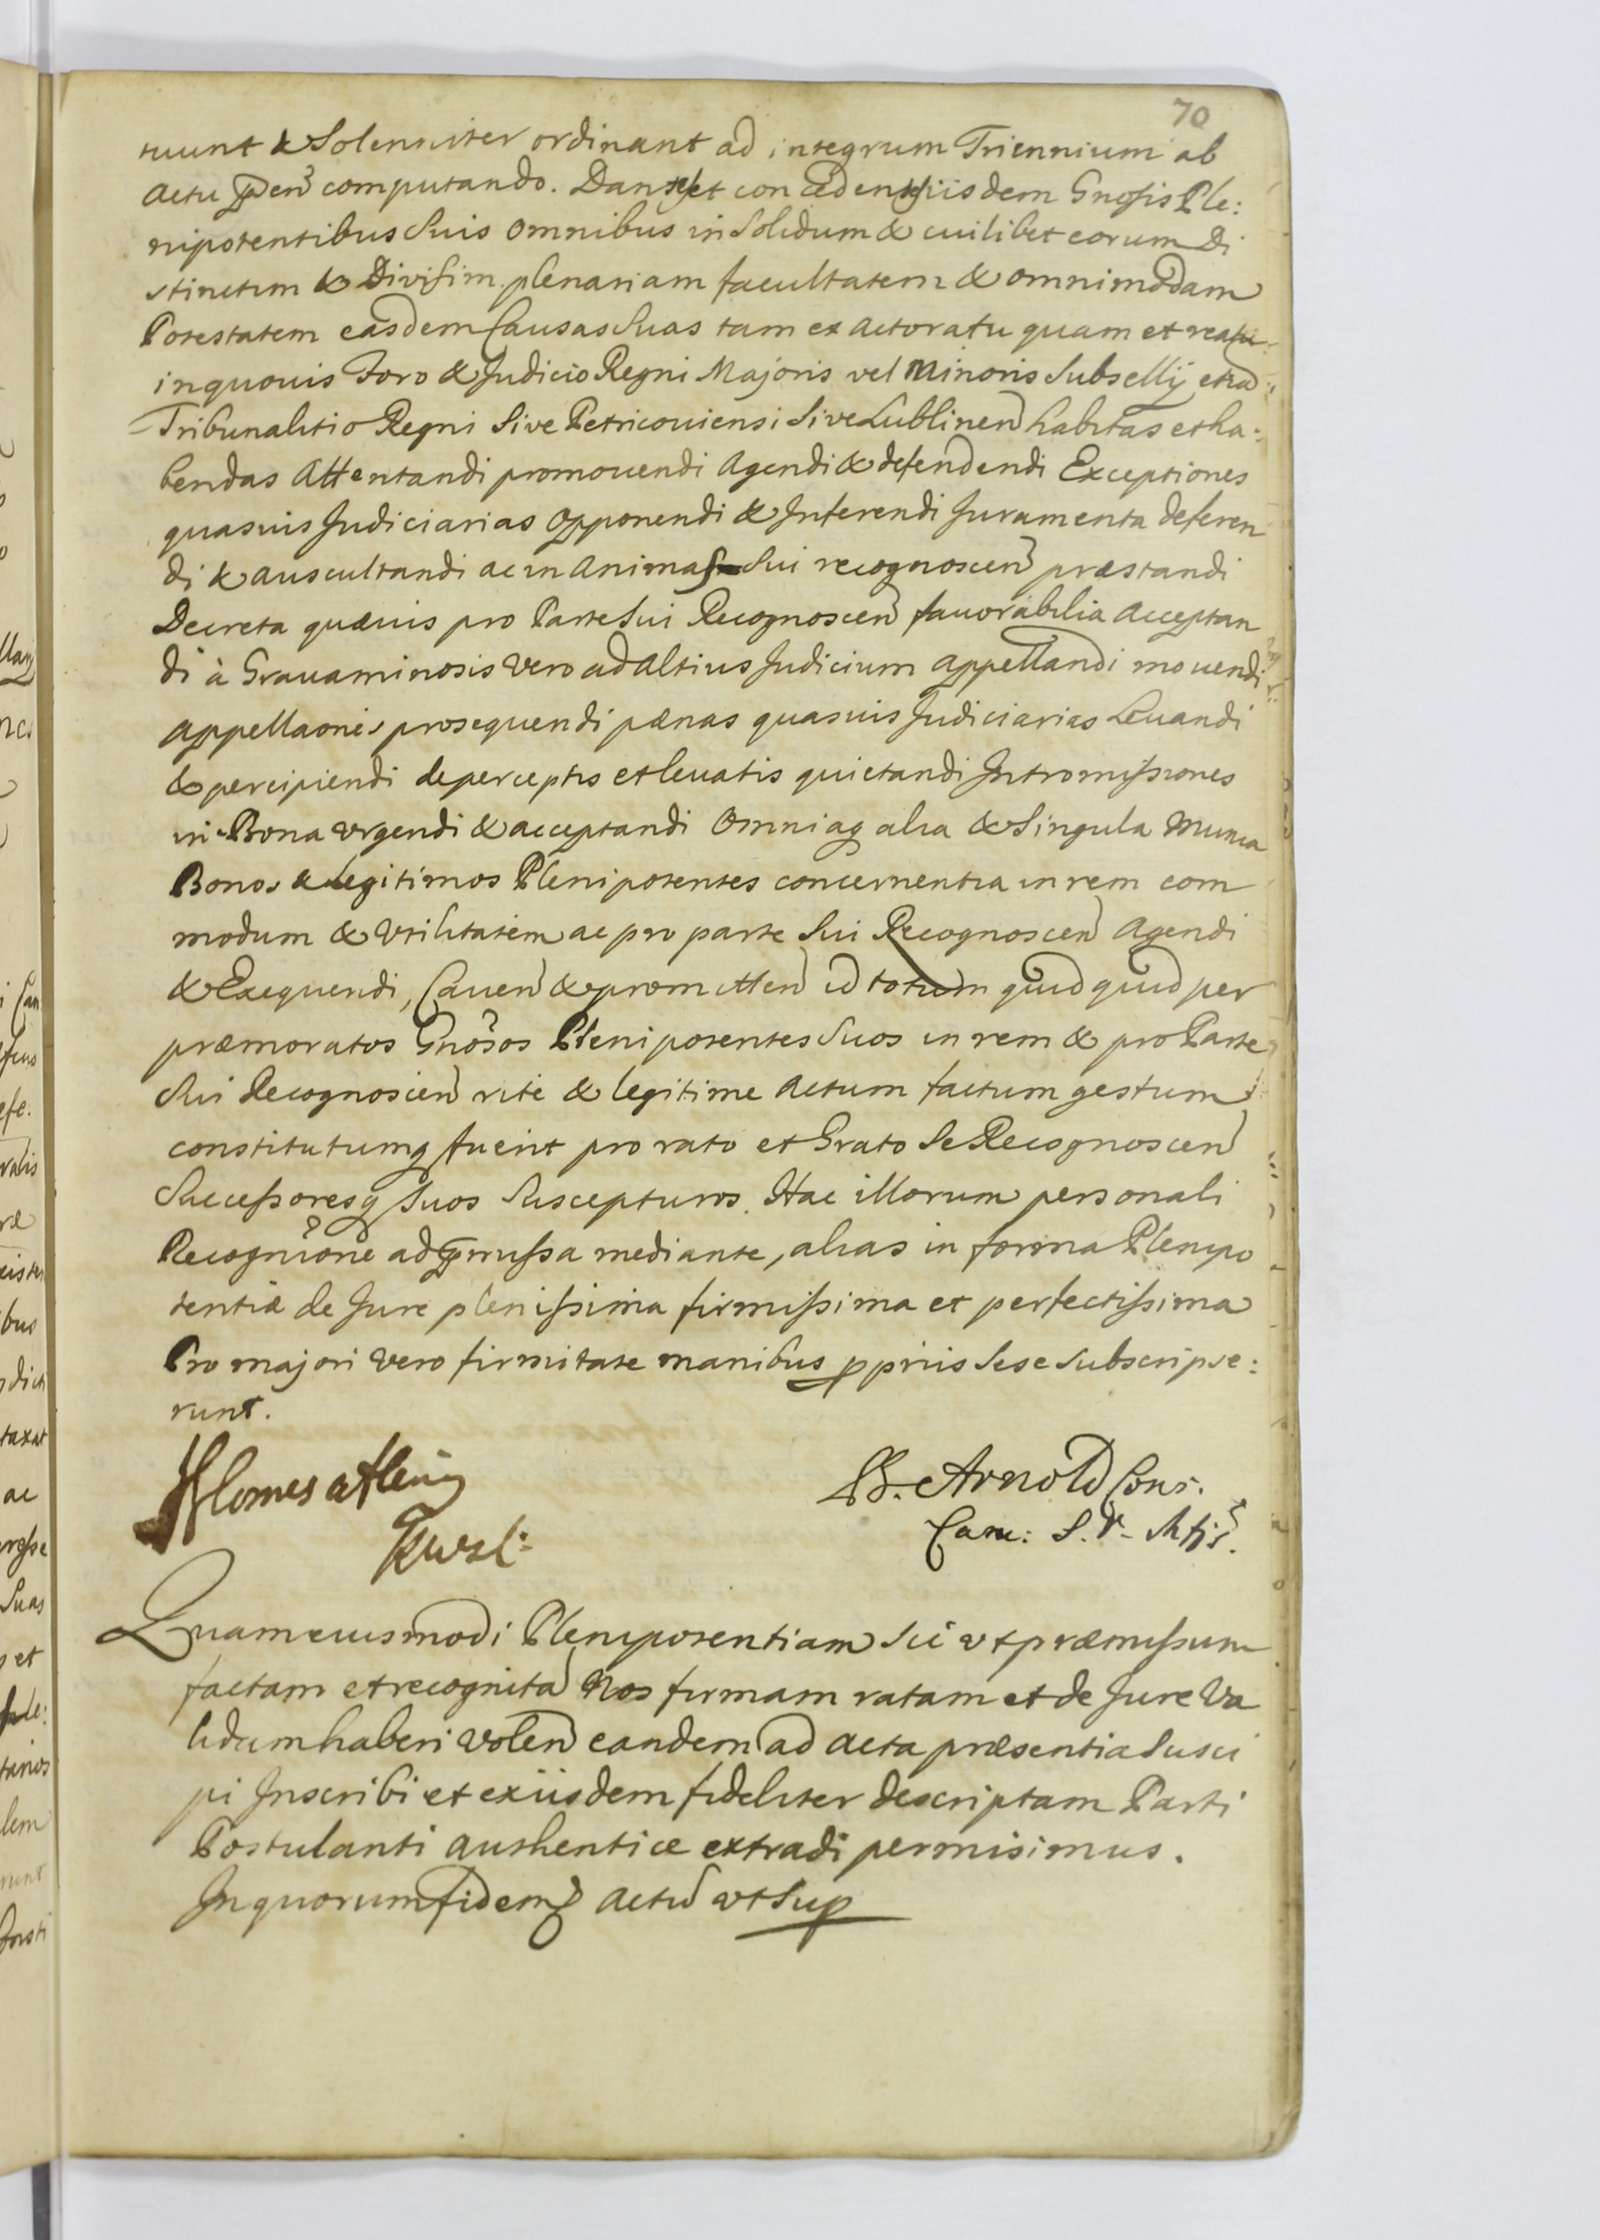 70
tuunt & Solenniter ordinant ad integrum Triennium ab
actu pñen computando. Dantes et concedentes iisdem Gnosis Ple:
nipotentibus Suis omnibus in Solidum & cuilibet eorum Di
stinctim & Divisim plenariam facultatem & omnimodam
Potestatem easdem Causas Suas tam ex actoratu quam et reatu
in quouis Foro & Judicio Regni Majoris vel Minoris Subsellij et ad
Tribunalitio Regni Sive Petricouiensi Sive Lublinen habitas et ha:
bendas attentandi promouendi agendi & defendendi Exceptiones
quasuis Judiciarias opponendi & Inferendi Juramenta deferen
di & auscultandi ac in animas Sui recognoscen præstandi
Decreta quæuis pro Parte Sui Recognoscen fauorabilia acceptan
di à Grauaminosis Vero ad altius Judicium appellandi mouendi
appellaones prosequendi pænas quasuis Judiciarias Leuandi
& percipiendi de perceptis et leuatis quietandi Intromissiones
in Bona vrgendi & acceptandi Omniaq alia & Singula Munia
Bonos & Legitimos Plenipotentes concernentia in rem com
modum & vtilitatem ac pro parte Sui Recognoscen Agendi
& Exequendi, Cauen & promitten id totum quidquid per
præmoratos Gnosos Plenipotentes Suos in rem & pro Parte
Sui Recognoscen rite & legitime actum factum gestum
constitutumq fuerit pro rato et Grato Se Recognoscen
Successoresq Suos Suscepturos. Hac illorum personali
Recognitione ad pmissa mediante, alias in forma Plenipo
tentiæ de Jure plenissima firmissima et perfectissima
Pro majori Vero firmitate manibus ppriis Sese subscripse:
runt.
B. Arnold Cons.
Com: S. R. Mtis.
Quam eiusmodi Plenipotentiam Sic vt præmissum
factam et recognita Nos firmam ratam et de Jure Va
lidam haberi Volen eandem ad acta præsentia Susci
pi Inscribi et ex iisdem fideliter descriptam Parti
Postulanti authentice extradi permisimus.
In quorum fidem Actu vt Sup